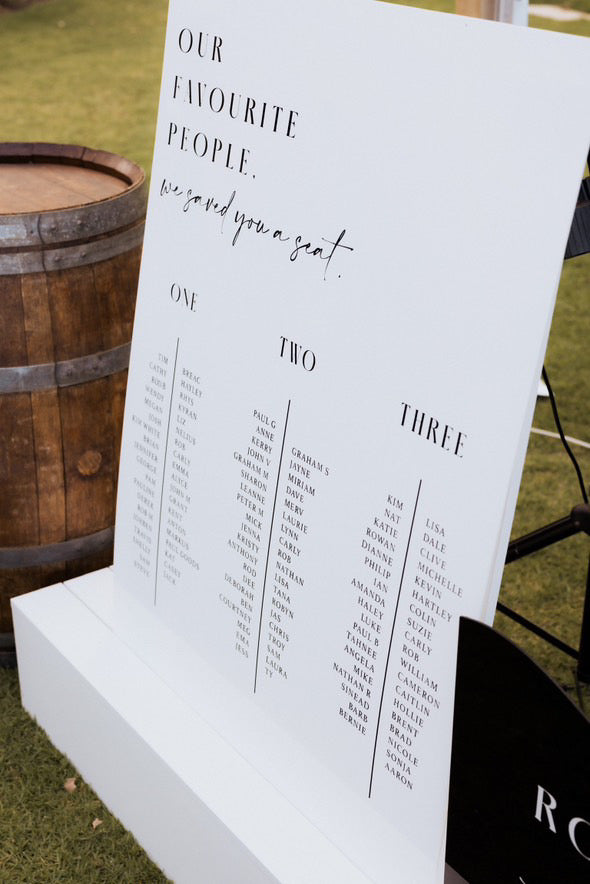 OUR
FAVOURITE
PEOPLE.
we saved you a seat.
ONE
TIM
CATHY
WENDY
MEGAN
JOSH
KIM WHITE
BRIAN
JENNIFER
GEORGE
PAM
PAULINE
BREAC
HAYLEY
RHYS
KYRAN
LIZ
ROB
CARLY
EMMA
ALICE
JOHN M
GRANT
KENT
ANTON
MARKUS
PAUL GOODS
KAI
CASEY
JACK
TWO
PAUL G
ANNE
KERRY
JOHN V
GRAHAM M
SHARON
LEANNE
PETER M
MICK
JENNA
KRISTY
ANTHONY
ROD
DEE
DEBORAH
BEN
COURTNEY
MEG
EMA
JESS
GRAHAM S
JAYNE
MIRIAM
DAVE
MERV
LAURIE
LYNN
CARLY
ROB
NATHAN
LISA
TANA
ROBYN
JAS
CHRIS
TROY
SAM
LAURA
TY
THREE
KIM
NAT
KATIE
ROWAN
DIANNE
PHILIP
IAN
AMANDA
HALEY
LUKE
PAUL B
TAHNEE
ANGELA
MIKE
NATHAN R
SINEAD
BARB
BERNIE
LISA
DALE
CLIVE
MICHELLE
KEVIN
HARTLEY
COLIN
SUZIE
CARLY
ROB
WILLIAM
CAMERON
CAITLIN
HOLLIE
BRENT
BRAD
NICOLE
SONJA
AARON